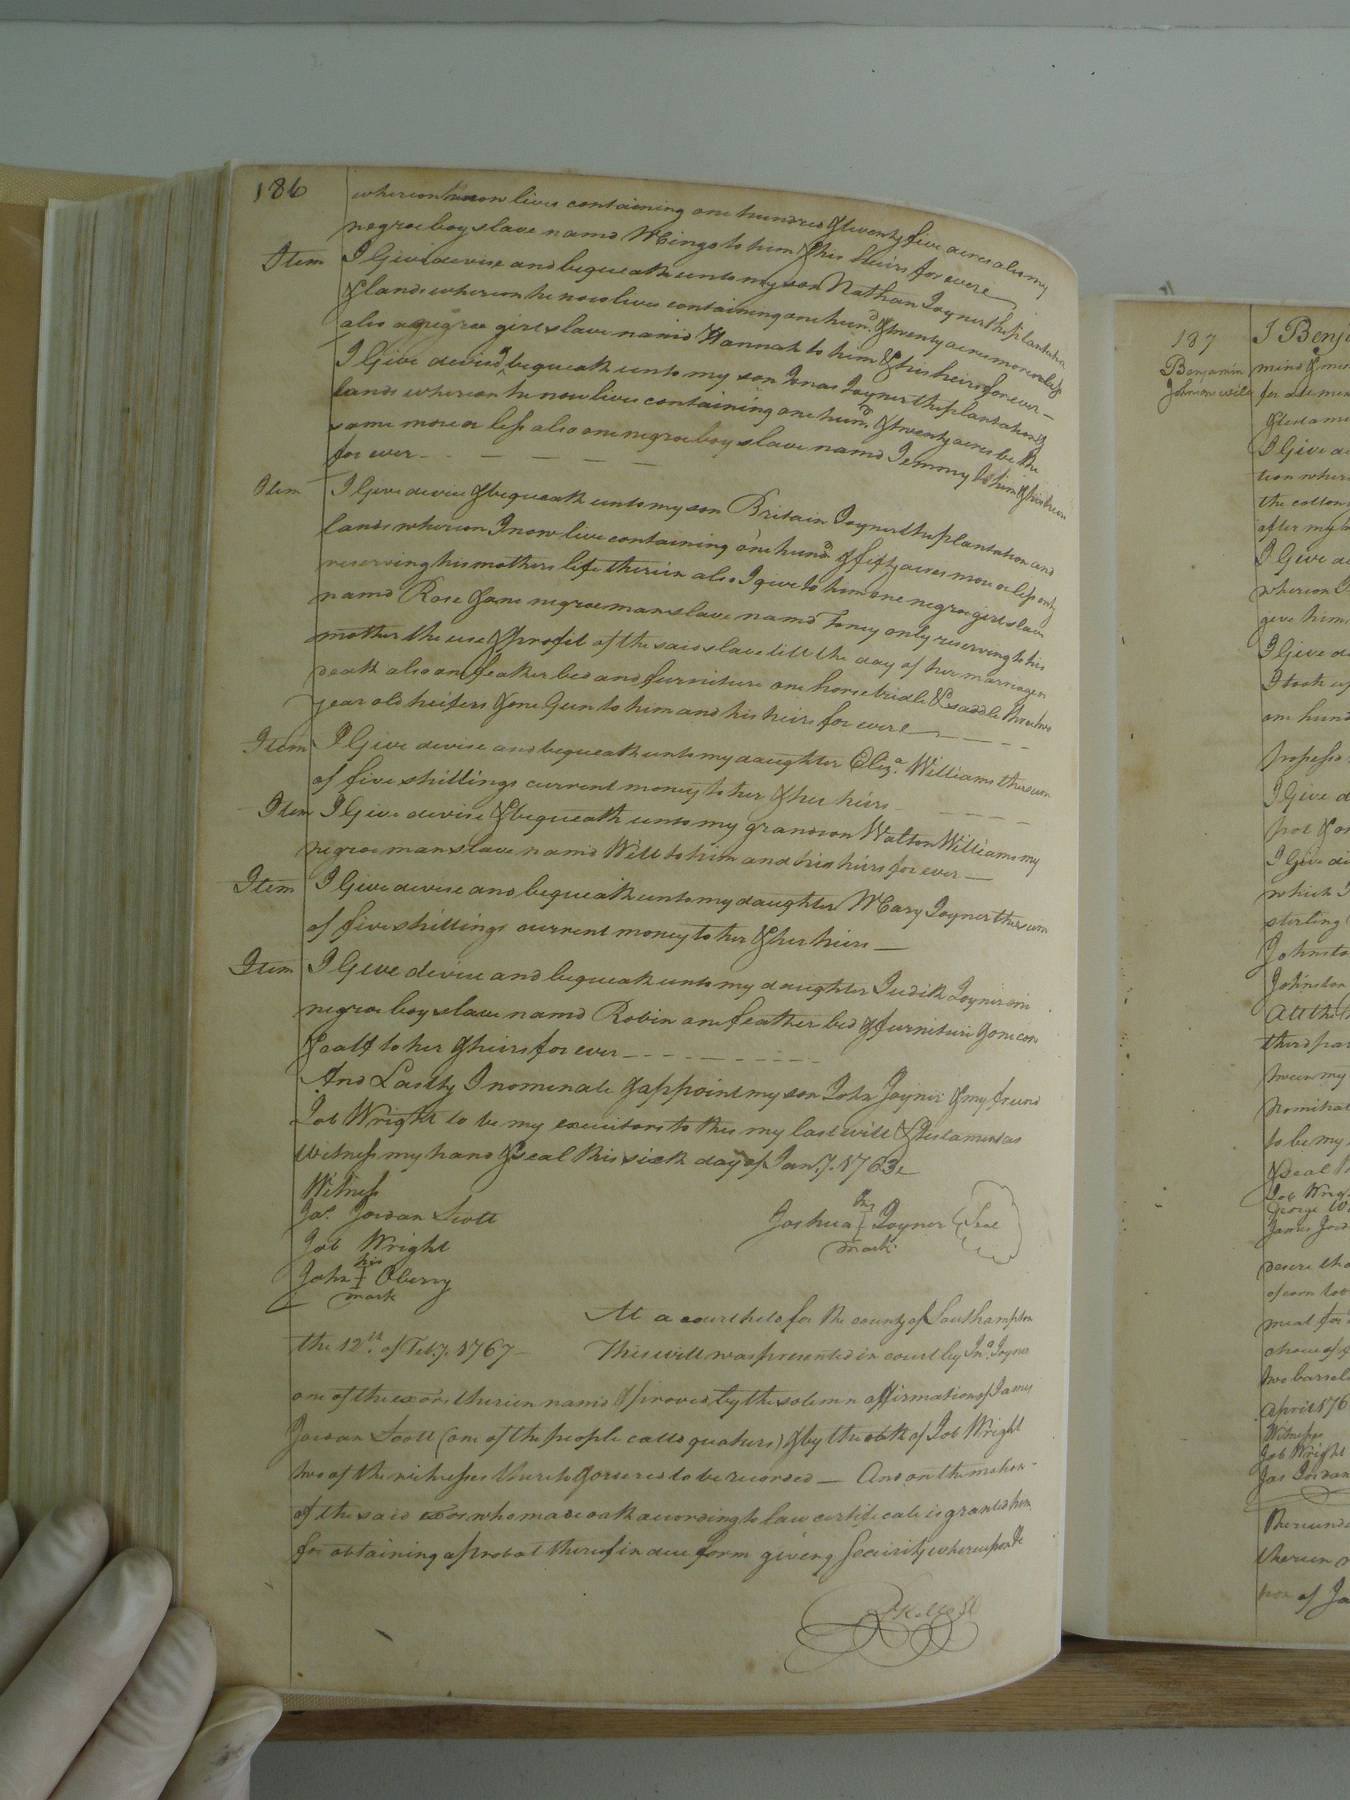 186
whereon he now lives containing one hundred & twenty five acres also my
negroe boy slave namd Mingo to him & his heirs for evere
Item I Give devise and bequeath unto my son Nathan Joyner the plantation
& lands whereon he now lives containing one hund. & twenty acres more or less
also a negroe girl slave namd Hannah to him & his heirs for ever
I Give devise & bequeath unto my son Jonas Joyner the plantation &
lands whereon he now lives containing one hund. & twenty acres be the
same more or less also one negroe boy slave namd Jemmy to him & his heirs
for ever
Item I Give devise & bequeath unto my son Britain Joyner the plantation and
lands whereon I now live containing one hund. & fifty acres more or less only
reserving his mothers life therein also I give to him one negroe girl slave
namd Rose & one negroe man slave namd Toney only reserving to his
mother the use & profit of the said slave till the day of her marriage or
death also one feather bed and furniture one horse bridle & saddle three two
year old heifers & one Gun to him and his heirs for evere
Item I Give devise and bequeath unto my daughter Eliza. Williams the sum
of five shillings current money to her & her heirs
Item I Give devise & bequeath unto my grandson Walton Williams my
negroe man slave namd Will to him and his heirs for ever
Item I Give devise and bequeath unto my daughter Mary Joyner the sum
of five shillings current money to her & her heirs
Item I Give devise and bequeath unto my daughter Judith Joyner one
negroe boy slave namd Robin one feather bed & furniture & one cow
& calf to her & heirs for ever
And Lastly I nominate & appoint my son John Joyner & my friend
Job Wright to be my executors to this my last will & testament as
witness my hand & seal this sixth day of Jany. 1763
Witness
Jas. Jordan Scott
Job Wright
his
John I Oberry
mark
his
Joshua I Joyner Seal
mark
At a court held for the county of Southampton
the 12th. of Feby. 1767 This will was presented in court by Jno. Joyner
one of the exors. therein namd & proved by the solemn affirmation of James
Jordan Scott (one of the people calld quakers) & by the oath of Job Wright
two of the witnesses thereto & ordered to be recorded And on the motion
of the said exor who made oath according to law certificate is granted him
for obtaining a probat thereof in due form giving security whereupon &c
137
Benjamin
Johnson will
I Benj
I Give
I Give
I Give
I took
one hund
I Give
I Give
which I
sterling
Johnston
Johnston
All the
Nominat
to be my
Job Wrig
George
James Jor
April 176
Witnesses
Job Wright
Jas Jordan